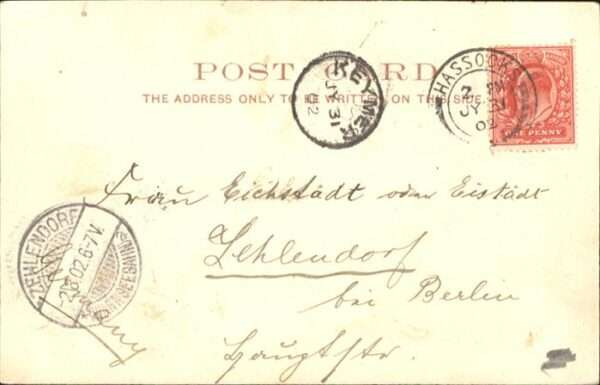 POST CARD
THE ADDRESS ONLY TO BE WRITTEN ON THIS SIDE.
KEYMER
JY 31
02
HASSOCK
JY 31
02
ONE PENNY
Frau Eichstädt oder Eistädt
Zehlendorf
bei Berlin
Hauptstr.
ZEHLENDORF
2.8.02.6-7V.